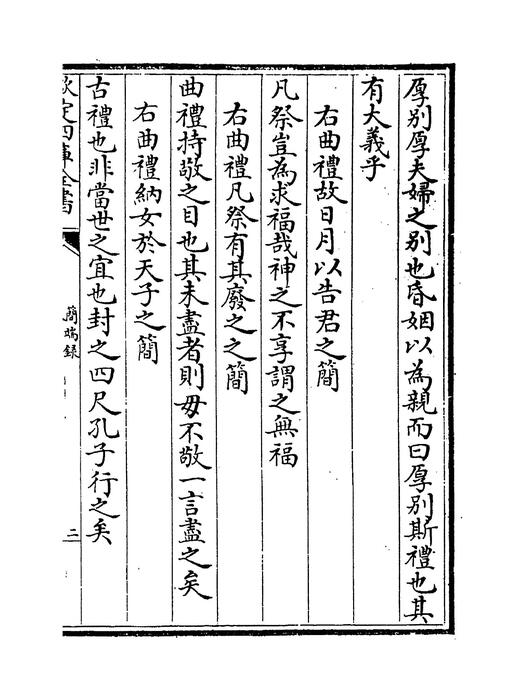 厚别厚夫婦之别也昏姻以為親而曰厚别斯禮也其
有大義乎
右曲禮故日月以告君之簡
凡祭豈為求福哉神之不享謂之無福
右曲禮凡祭有其廢之之簡
曲禮持敬之目也其未盡者則毋不敬一言盡之矣
右曲禮納女於天子之簡
古禮也非當世之宜也封之四尺孔子行之矣
欽定四庫全書
簡端録
二